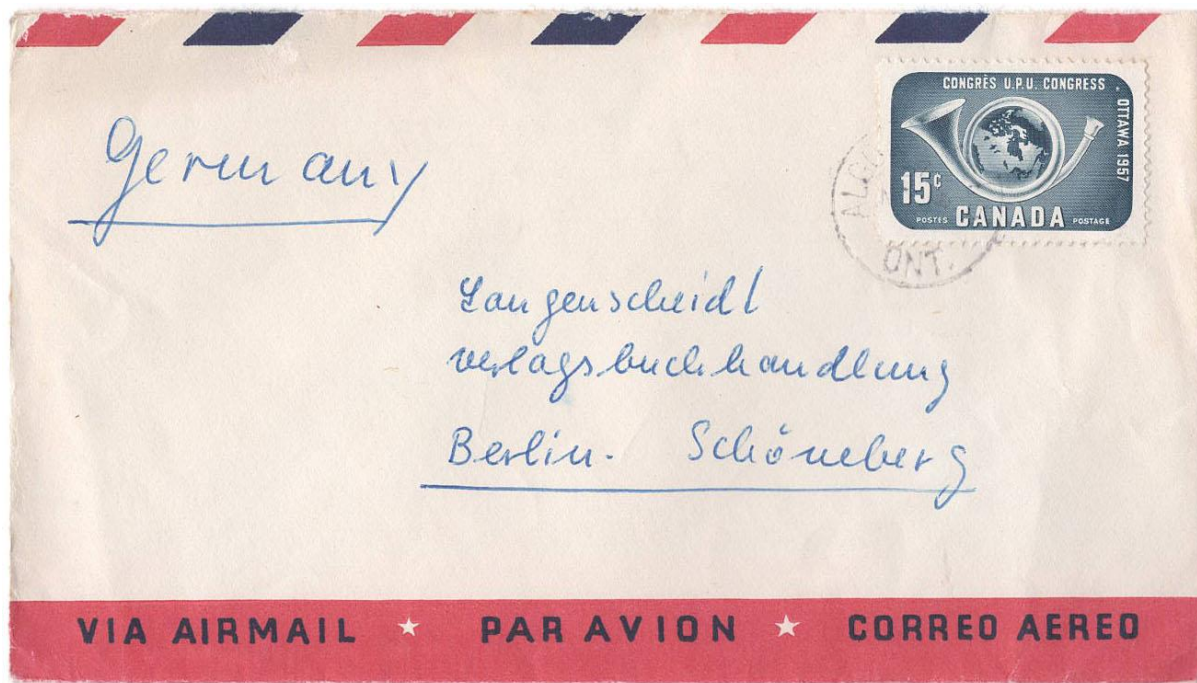 CONGRÈS U.P.U. CONGRESS . OTTAWA 1957
15c
POSTES CANADA POSTAGE
ONT.
Germany
Langenscheidt
Verlagsbuchhandlung
Berlin. Schöneberg
VIA AIRMAIL ★ PAR AVION ★ CORREO AEREO